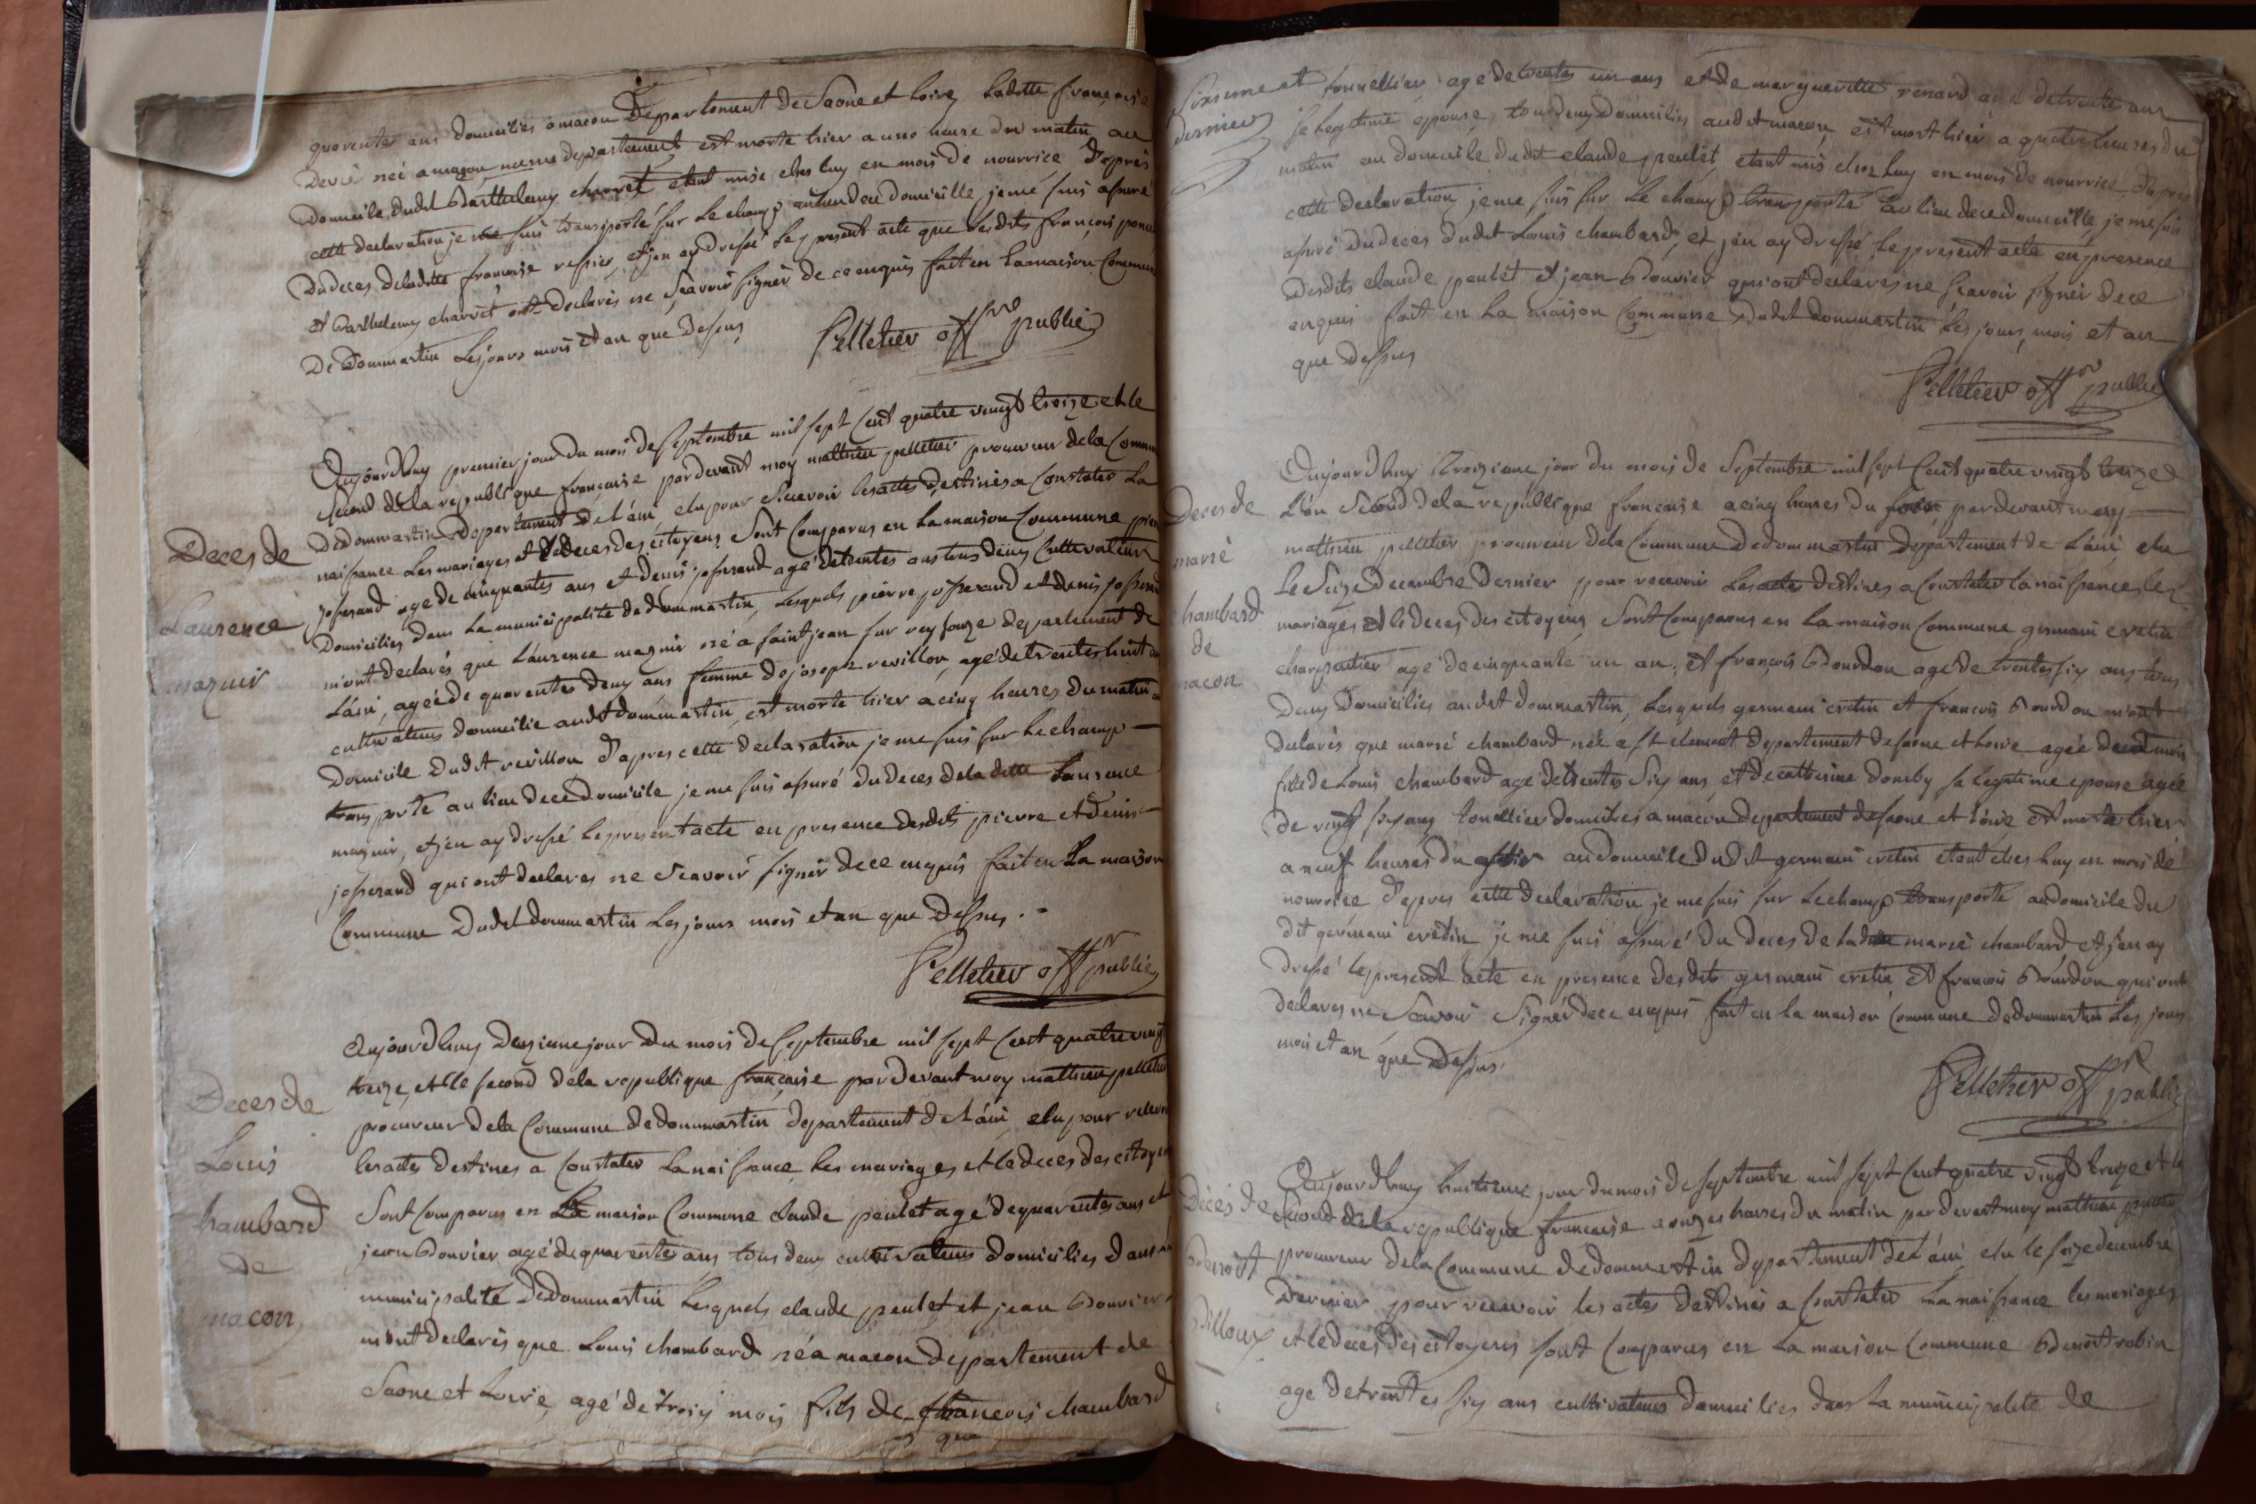 quarentes ans domicilies a macon Département de Saône et Loire Laditte françoise
née a macon meme departement est morte hier a une heure du matin au
Domicile dudit Barthelemy charvet etant mise ches luy en mois de nourrice D'apres
cette declaration je me suis transporté sur le champ au lieu de ce domicille je me suis assuré
Du deces de laditte françoise et j'en ay dressé le present acte que lesdits francois
et Barthelemy charvet ont declarés ne scavoir signer de ce enquis fait en la maison Commune
De Dommartin les jours mois et an que Dessus
Pelletier off public
Aujourd'huy premier jour du mois de septembre mil sept cent quatre vingt treize et le
second de la republique française pardevant moy mathieu pelletier procureur de la Commune
De dommartin departement de L'ain elu pour recevoir les actes destinés a constater La
naissance les mariages et le deces des citoyens sont comparus en la maison Commune pierre
josserand agé de cinquantes ans et denis josserand agé de trentes ans tous deux cultivateurs
Domicilies dans la municipalité de dommartin, Lesquels pierre josserand et denis josserand
m'ont declarés que Laurence magnin née a saint jean sur reyssouze departement de
L'ain, agée de quarentes deux ans femme de joseph revillon, agé de trentes huit ans
cultivateurs domicilie audit dommartin, est morte hier a cinq heures du matin au
Domicile dudit revillon D'apres cette declaration je me suis sur le champ
transporté au lieu de ce domicile je me suis assuré du deces de la ditte Laurence
magnin, et j'en ay dressé le present acte en presence desdits pierre et Denis
josserand qui ont declares ne scavoir signer de ce enquis fait en La maison
Commune Dudit dommartin les jours mois et an que Dessus.
Pelletier off public
Deces de
Laurence
magnin
Aujourd'huy deuzieme jour Du mois de septembre mil sept cent quatre vingt
treize, et le second de la republique française pardevant moy mathieu pelletier
procureur de la Commune de dommartin departement de L'ain elu pour recevoir
les actes destines a constater La naissance les mariages et le deces des citoyens
sont comparus en La maison Commune claude peulet agé de quarentes ans et
jean Bouvier agé de quarentes ans tous deux cultivateurs domicilies dans la
municipalité de dommartin Lesquels claude peulet et jean Bouvier
m'ont declarés que Louis chambard né a macon departement de
Saône et Loire, agé de trois mois fils de francois chambard
Deces de
Louis
chambard
de
macon
tonnellier agé de trentes un ans et de margueritte renard agée de trente ans
sa legitime epouse, tous deux domicilies audit macon, est mort hier a quatre heures du
matin au domicile dudit claude peulet, etant mis ches luy en mois de nourrice, D'apres
cette declaration je me suis sur le champ transporté au lieu de ce domicille, je me suis
assuré du deces dudit Louis chambard, et j'en ay dressé le present acte en presence
Desdits claude peulet et jean Bouvier qui ont declarés ne scavoir signer de ce
enquis fait en la maison commune Dudit dommartin les jours, mois et an
que dessus
Pelletier off public
Aujourd'huy troizieme jour du mois de Septembre mil sept cent quatre vingt treize
L'an Second de la republique française a cinq heures du soir pardevant moy
mathieu pelletier procureur de la Commune de dommartin departement de L'ain elu
Le Seize decembre dernier pour recevoir Les actes destines a constater la naissance, les
mariages et le deces des citoyens sont comparus en La maison Commune germain cretin
charpentier agé de cinquante un an, et françois Bourdon agé de trentes six ans tous
Deux Domicilies audit dommartin, Lesquels germain cretin et francois Bourdon m'ont
declarés que marie chambard née a st clement departement de saone et Loire agée de
fille de Louis chambard agé de trentes six ans, et de catherine sa legitime epouse agée
De vingt six ans tonellier domicilies a macon departement de saone et Loire est morte hier
a neuf heures du au domicile dudit germain cretin etant ches luy en mois de
nourrice D'apres cette declaration je me suis sur le champ transporté au domicile du
dit germain cretin je me suis assuré du deces de laditte marie chambard et j'en ay
dressé le present acte en presence desdits germain cretin et francois Bourdon qui ont
declares ne Scavoir Signer de ce enquis fait en la maison commune de dommartin Les jours
mois et an que Dessus.
Pelletier off public
Deces de
marie
chambard
de
macon
Aujourd'huy huitieme jour du mois de septembre mil sept cent quatre vingt treize et le
second de la republique francaise a onzes heures du matin pardevant moy mathieu
procureur de la Commune de dommartin departement de L'ain elu le seize decembre
Dernier pour recevoir les actes destinés a constater La naissance les mariages
et le deces des citoyens sont comparus en La maison Commune Benoit robin
agé de trentes six ans cultivateurs domicilies dans la municipalité de
Déces de
Benoit